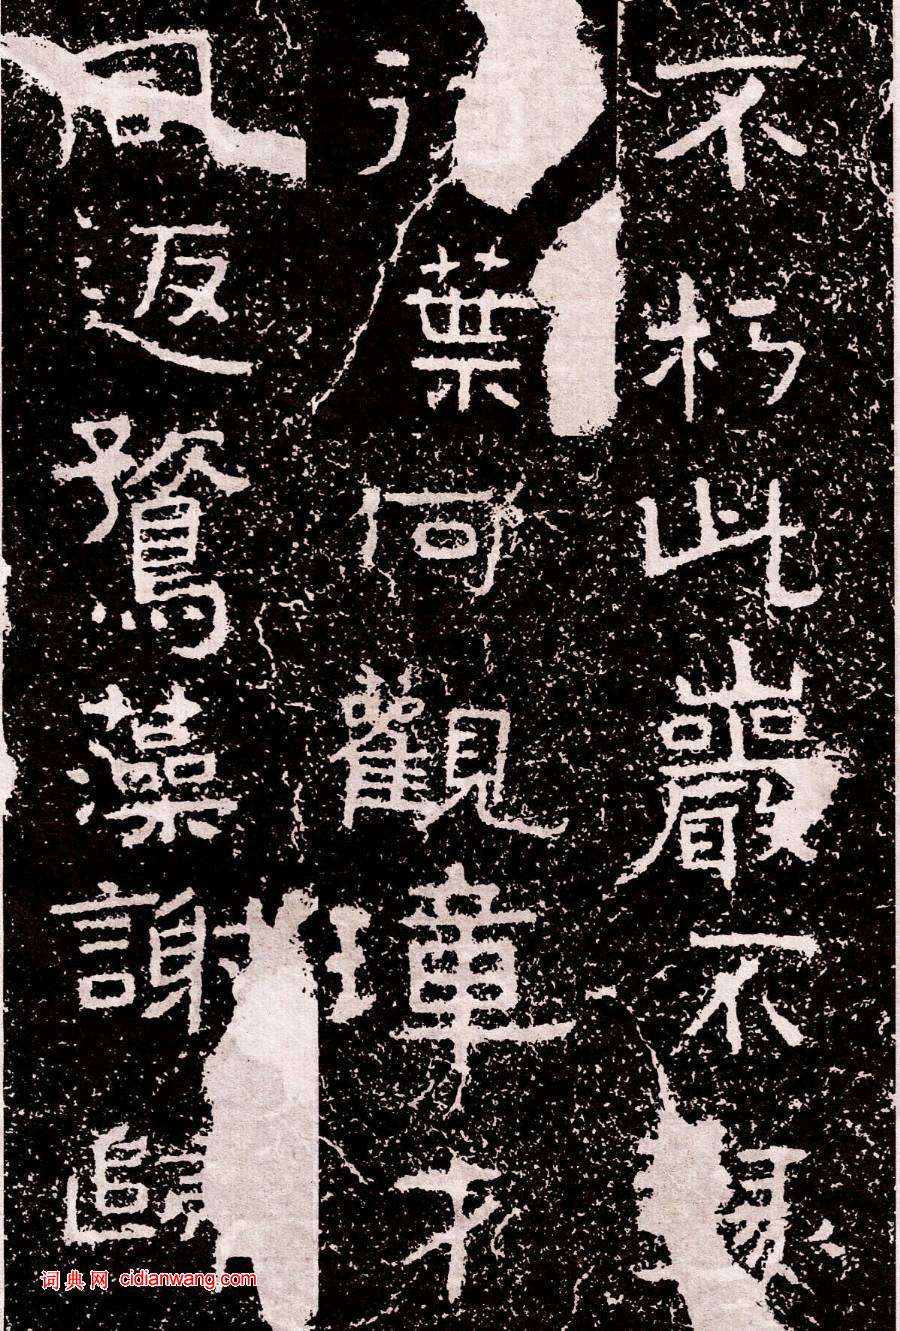 不朽此巖不
葉何觀璋才
返鶩藻謝歸
词典网 cidianwang.com